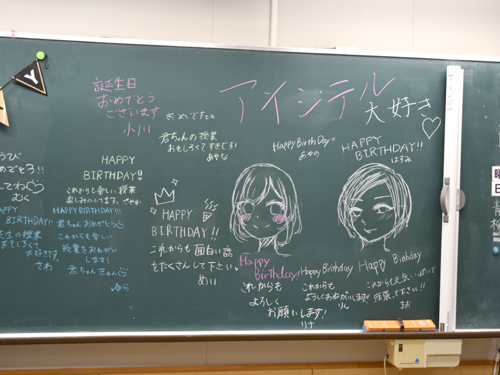 アイシテル
大好き
誕生日
おめでとう
ございます
小川
おめでとう
君ちゃんの授業
おもしろくてすきです!
あやな
Happy Birth Day!!
あやの
HAPPY
BIRTHDAY!!
はるみ
HAPPY
BIRTHDAY!!
これからも楽しい授業
楽しみにしてます。
HAPPY
BIRTHDAY!!
これからも面白い話
をたくさんして下さい。
めい
HAPPY BIRTHDAY!!!
君ちゃんおめでとう
これからも楽しい
授業をおねがい
します!
君ちゃんさん
ゆら
HAPPY
BIRTHDAY!!
先生の授業
おもしろくて
大好きです。
さわ
むく
Happy
Birthday!
これからも
よろしく
お願いします!
りな
Happy Birthday
これからも
よろしくおねがいします!
りん
Happy Birthday
これからも元気いっぱいで
頑張て下さい!!
まお
Y
曜
日